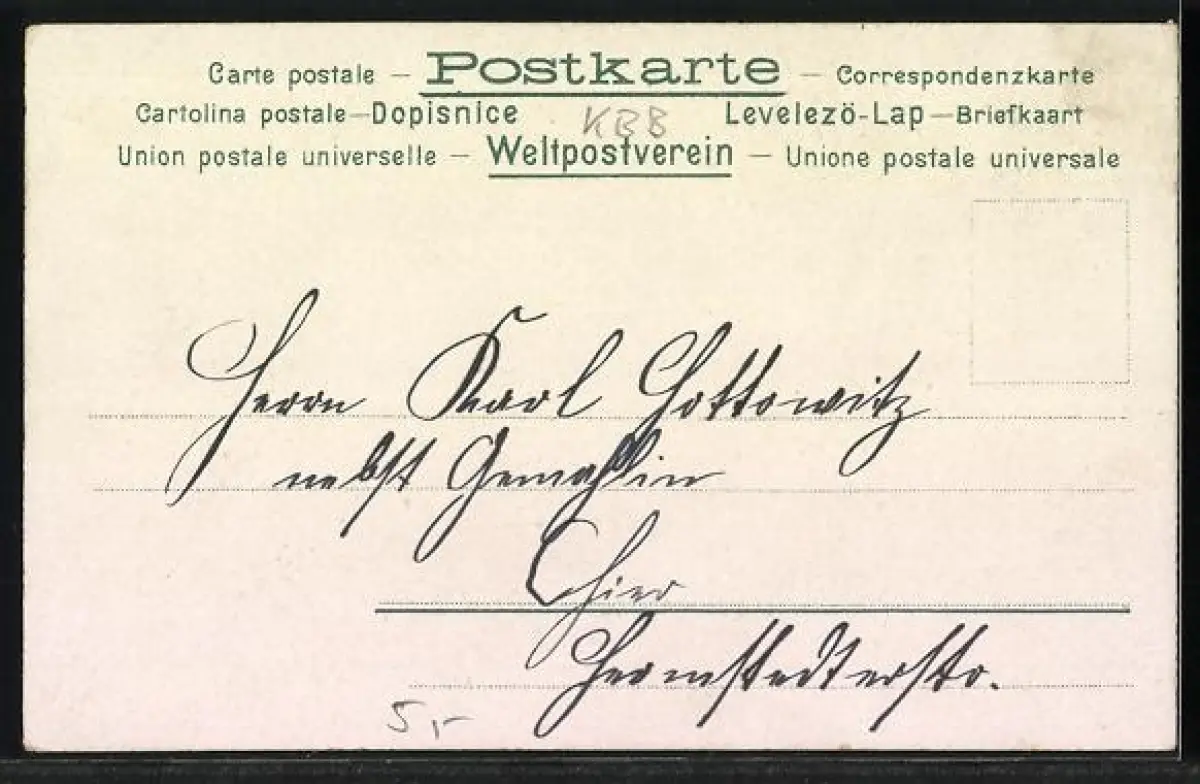 Carte postale – Postkarte – Correspondenzkarte
Cartolina postale – Dopisnice KBB Levelezö-Lap – Briefkaart
Union postale universelle – Weltpostverein – Unione postale universale
Herrn Karl Hottowitz
nebst Gemahlin
Hier
Hermstedterstr.
5,-